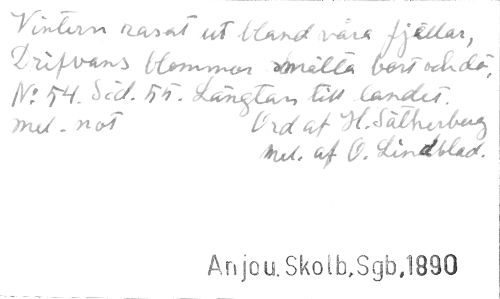 Vintern rasat ut bland våra fjällar,
Drifvans blommor smälta bort och dö,
No: 54. Sid. 55. Längtan till landet.
med. not Ord af H. Sätherberg
mel. af O. Lindblad.
Anjou. Skolb, Sgb, 1890